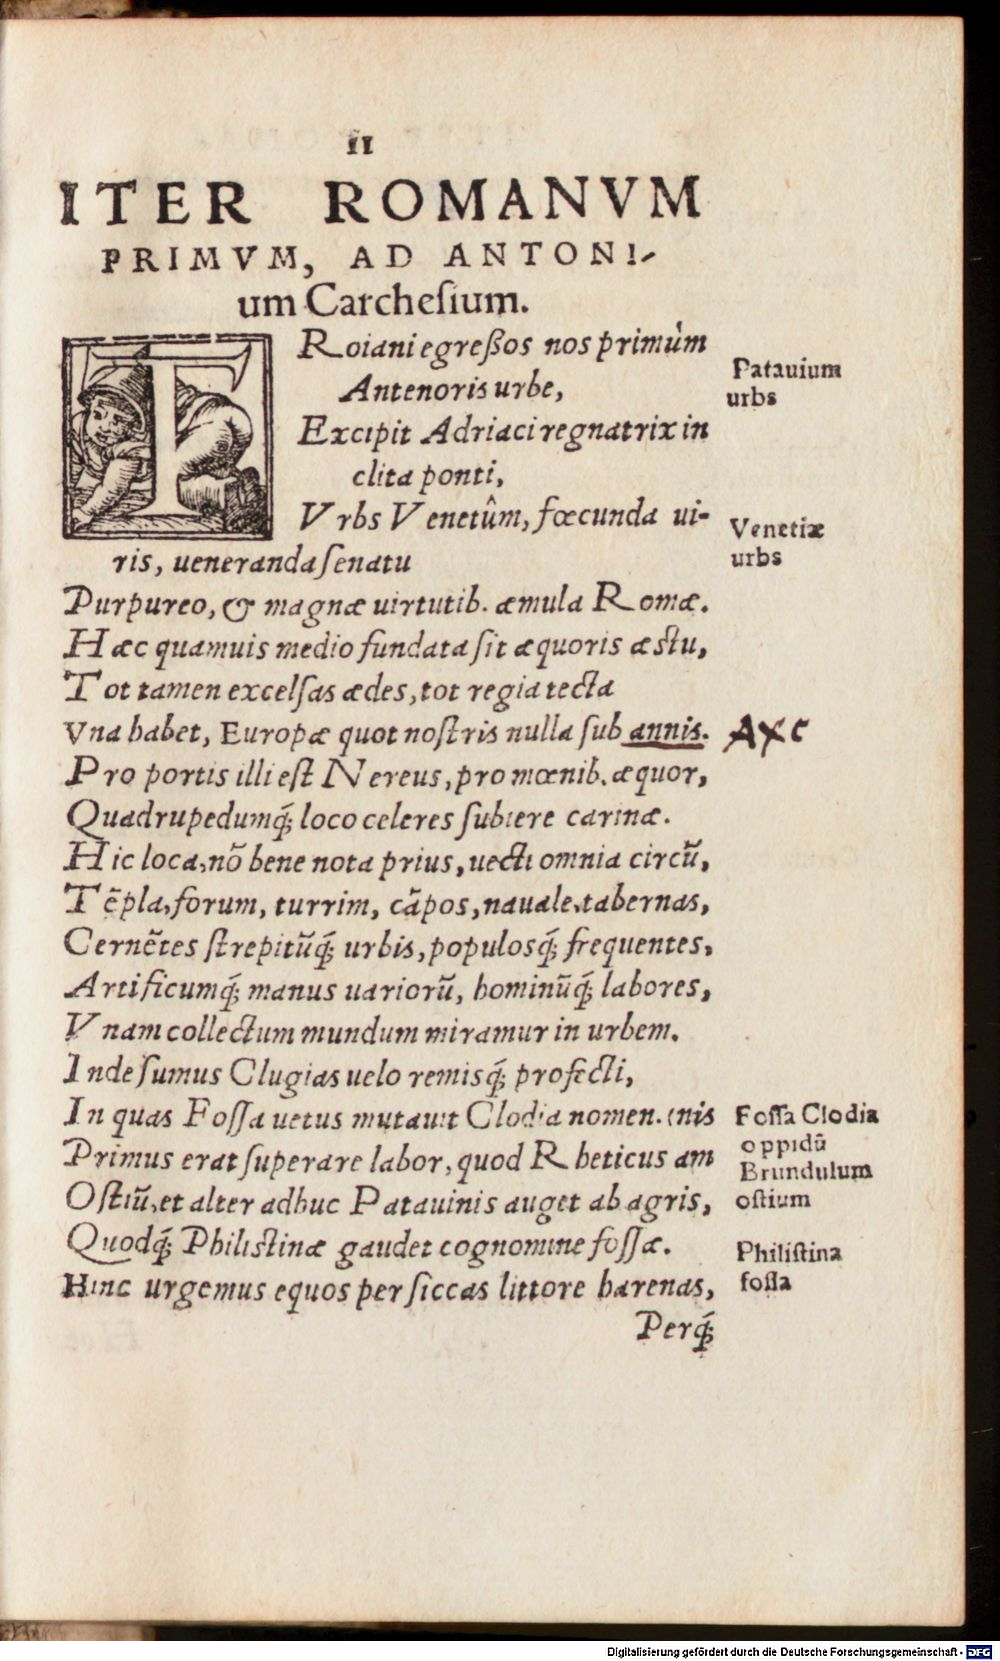 II
ITER ROMANVM
PRIMVM, AD ANTONI-
um Carcheſium.
TRoiani egreßos nos primùm
Antenoris urbe,
Patauium
urbs
Excipit Adriaci regnatrix in
clita ponti,
Vrbs Venetûm, fœcunda ui-
Venetiæ
urbs
ris, ueneranda ſenatu
Purpureo, & magnæ uirtutib. æmula Romæ.
Hæc quamuis medio fundata ſit æquoris æstu,
Tot tamen excelſas ædes, tot regia tecta
Vna habet, Europæ quot noſtris nulla ſub annis.
Pro portis illi eſt Nereus, pro mœnib. æquor,
Quadrupedumq́; loco celeres ſubiere carinæ.
Hic loca, nõ bene nota prius, uecti omnia circũ,
Tẽpla, forum, turrim, cãpos, nauale, tabernas,
Cernẽtes ſtrepitũq́; urbis, populosq́; frequentes,
Artificumq́; manus uariorũ, hominũq́; labores,
Vnam collectum mundum miramur in urbem.
Inde ſumus Clugias uelo remisq́; profecti,
In quas Foſſa uetus mutauit Clodia nomen. (nis
Foſſa Clodia
oppidũ
Primus erat ſuperare labor, quod Rheticus am
Brundulum
oſtium
Oſtiũ, et alter adhuc Patauinis auget ab agris,
Quodq́; Philiſtinæ gaudet cognomine foſſæ.
Philiſtina
foſſa
Hinc urgemus equos per ſiccas littore harenas,
Perq́;
Digitalisierung gefördert durch die Deutsche Forschungsgemeinschaft - DFG